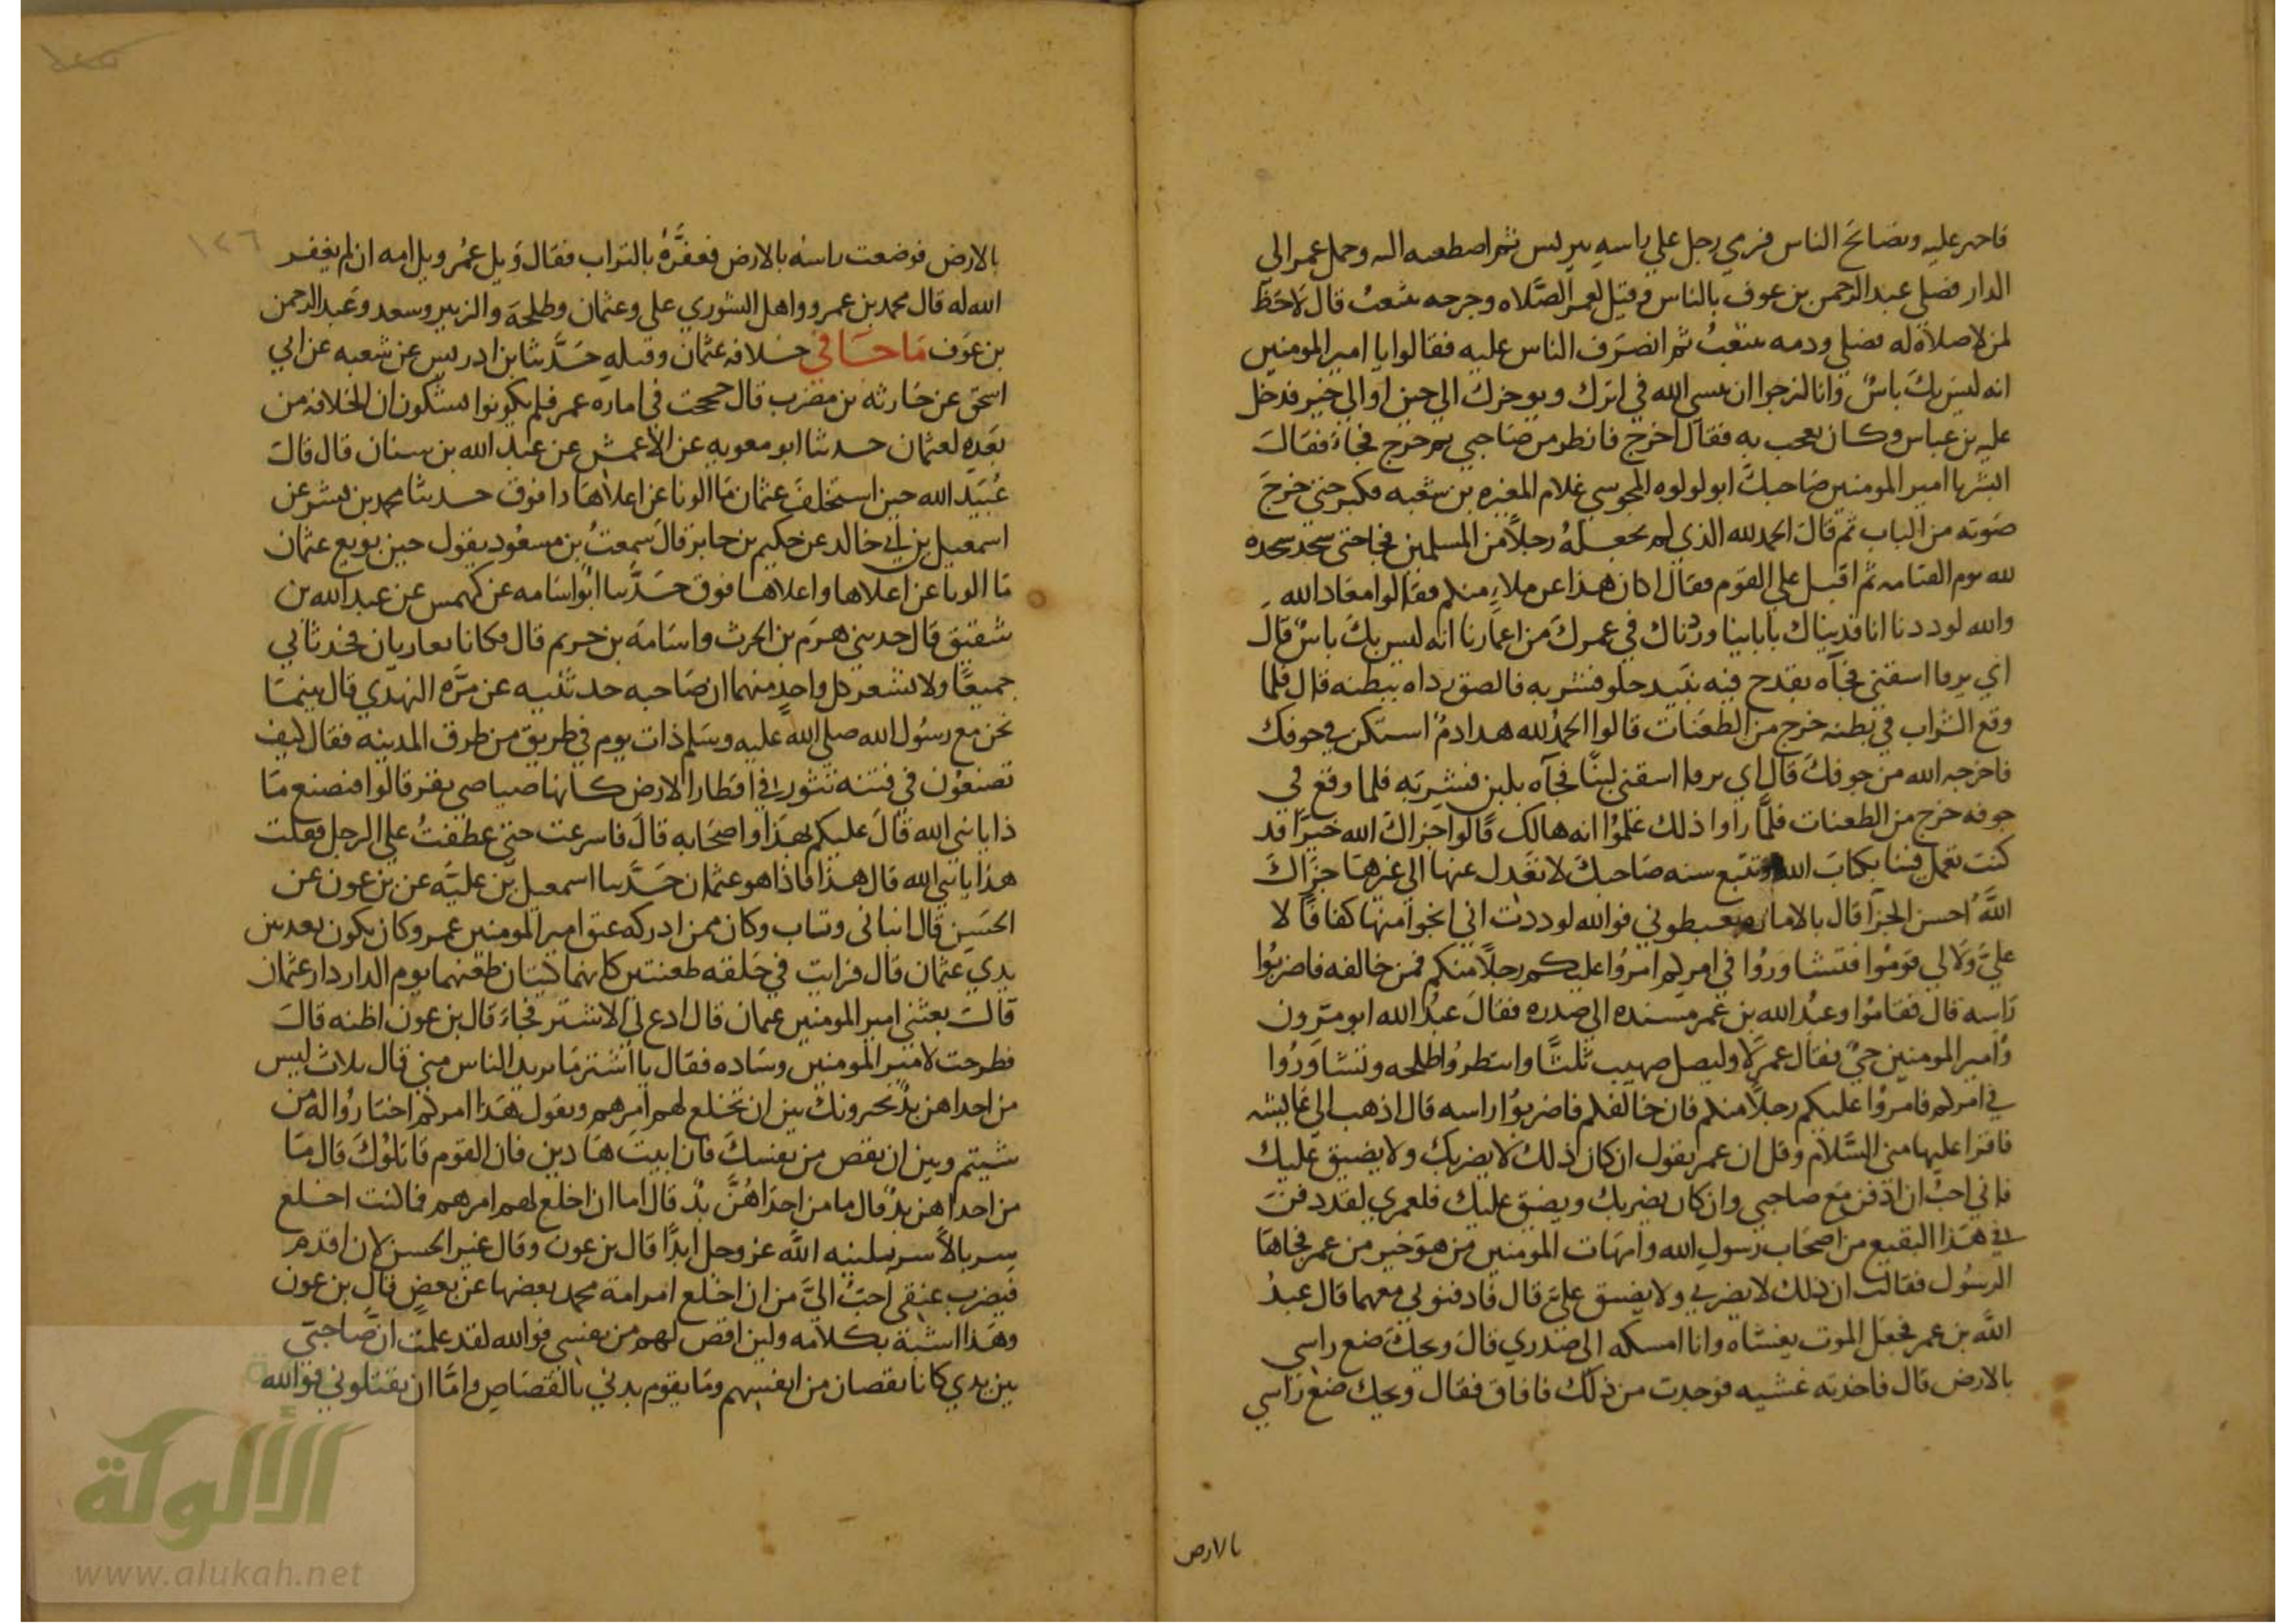 فاخبر عليه وتصائح الناس فرمي رجل علي راسه ببرنس ثم اضطبعه اليه وحمل عمر الي
الدار فصلي عبد الرحمن بن عوف بالناس وقيل لعمر الصلاه وجرحه يثعب قال لا حظ
لمن لا صلاة له فصلي ودمه يثعب ثم انصرف الناس عليه فقالوا يا امير المومنين
انه ليس بك باس وانا لنرجوا ان ينسي الله في اثرك ويوخرك الي حين او الي خير فدخل
عليه بن عباس وكان يعجب به فقال اخرج فانظر من صاحبي ثم خرج فجاء فقال
ابشر يا امير المومنين صاحبك ابو لولوه المجوسي غلام المغيره بن شعبه فكبر حتي خرج
صوته من الباب ثم قال الحمد لله الذي لم يجعله رجلا من المسلمين يحاجني بسجده سجدها
لله يوم القيامه ثم اقبل علي القوم فقال اكان هذا عن ملاء منكم فقالوا معاذ الله
والله لوددنا انا فديناك بابابنا وزدناك في عمرك من اعمارنا انه ليس بك باس قال
اي يرفا اسقني فجاه بقدح فيه نبيذ حلو فشربه فالصق رداه ببطنه قال فلما
وقع الشراب في بطنه خرج من الطعنات قالوا الحمد لله هذا دم استكن في جوفك
فاخرجه الله من جوفك قال اي يرفا اسقني لبنا فجاه بلبن فشربه فلما وقع في
جوفه خرج من الطعنات فلما راوا ذلك علموا انه هالك قالوا جزاك الله خيرا قد
كنت تعمل فينا بكتاب الله وتتبع سنه صاحبك لا تعدل عنها الي غيرها جزاك
الله احسن الجزا قال بالاماره تغبطوني فوالله لوددت اني انجوا منها كفافا لا
علي ولا لي قوموا فتشاوروا في امركم امروا عليكم رجلا منكم فمن خالفه فاضربوا
راسه قال فقاموا وعبد الله بن عمر مسنده الي صدره فقال عبد الله ايومرون
وامير المومنين حي فقال عمر لا وليصل صهيب ثلثا وانتظروا طلحه وتشاوروا
في امركم فامروا عليكم رجلا منكم فان خالفكم فاضربوا راسه قال اذهب الي عايشه
فاقرا عليها مني السلام وقل ان عمر يقول ان كان ذلك لا يضر بك ولا يضيق عليك
فاني احب ان ادفن مع صاحبي وان كان يضر بك ويضيق عليك فلعمري لقد دفن
في هذا البقيع من اصحاب رسول الله وامهات المومنين من هو خير من عمر فجاها
الرسول فقالت ان ذلك لا يضر بي ولا يضيق علي قال فادفنوني معهما قال عبد
الله بن عمر فجعل الموت يغشاه وانا امسكه الي صدري قال ويحك ضع راسي
بالارض قال فاخذته غشيه فوجدت من ذلك فافاق فقال ويحك ضع راسي
بالارض
١٢٦
بالارض فوضعت راسه بالارض فعفره بالتراب فقال ويل عمر وويل امه ان لم يغفر
الله له قال محمد بن عمرو واهل الشوري علي وعثمان وطلحة والزبير وسعد وعبد الرحمن
بن عوف ما جا في خلافه عثمان وقتله حدثنا بن ادريس عن شعبه عن ابي
اسحق عن حارثه بن مضرب قال حججت في اماره عمر فلم يكونوا يشكون ان الخلافه من
بعده لعثمان حدثنا ابو معويه عن الاعمش عن عبد الله بن سنان قال قال
عبيد الله حين استخلف عثمان ما الونا عن اعلاها ذا فوق حدثنا محمد بن بشر عن
اسمعيل بن ابي خالد عن حكيم بن جابر قال سمعت بن مسعود يقول حين بويع عثمان
ما الونا عن اعلاها واعلاها فوق حدثنا ابو اسامه عن كهمس عن عبد الله بن
شقيق قال حدثني هرم بن الحرث واسامة بن خريم قال وكانا يغازيان فحدثاني
جميعا ولا يشعر كل واحد منهما ان صاحبه حدثنيه عن مره النهدي قال بينما
نحن مع رسول الله صلي الله عليه وسلم ذات يوم في طريق من طرق المدينه فقال كيف
تصنعون في فتنه تثور في اقطار الارض كانها صياصي بقر قالوا فنصنع ما
ذا يا نبي الله قال عليكم بهذا واصحابه قال فاسرعت حتي عطفت علي الرجل فقلت
هذا يا نبي الله قال هذا فاذا هو عثمان حدثنا اسمعيل بن علية عن بن عون عن
الحسن قال انباني وثاب وكان ممن ادركه عتق امير المومنين عمر وكان يكون بعد بين
يدي عثمان قال فرايت في حلقه طعنتين كانهما كيتان طعنهما يوم الدار دار عثمان
قال بعثني امير المومنين عثمان قال ادع لي الاشتر فجاء قال بن عون اظنه قال
فطرحت لامير المومنين وساده فقال يا اشتر ما يريد الناس مني قال ثلاث ليس
من احداهن بد يخيرونك بين ان تخلع لهم امرهم وتقول هذا امركم اختاروا له من
شيتم وبين ان تقص من نفسك فان ابيت هاذين فان القوم قاتلوك قال ما
من احداهن بد قال ما من احداهن بد قال اما ان اخلع لهم امرهم فما كنت اخلع
سربالا سربلنيه الله عز وجل ابدا قال بن عون وقال غير الحسن لان اقدم
فيضرب عنقي احب الي من ان اخلع امر امة محمد بعضها عن بعض قال بن عون
وهذا اشبه بكلامه ولين اقص لهم من نفسي فوالله لقد علمت ان صاحبي
بين يدي كانا يقصان من انفسهم وما يقوم بدني بالقصاص واما ان يقتلوني فوالله
الألوكة
www.alukah.net